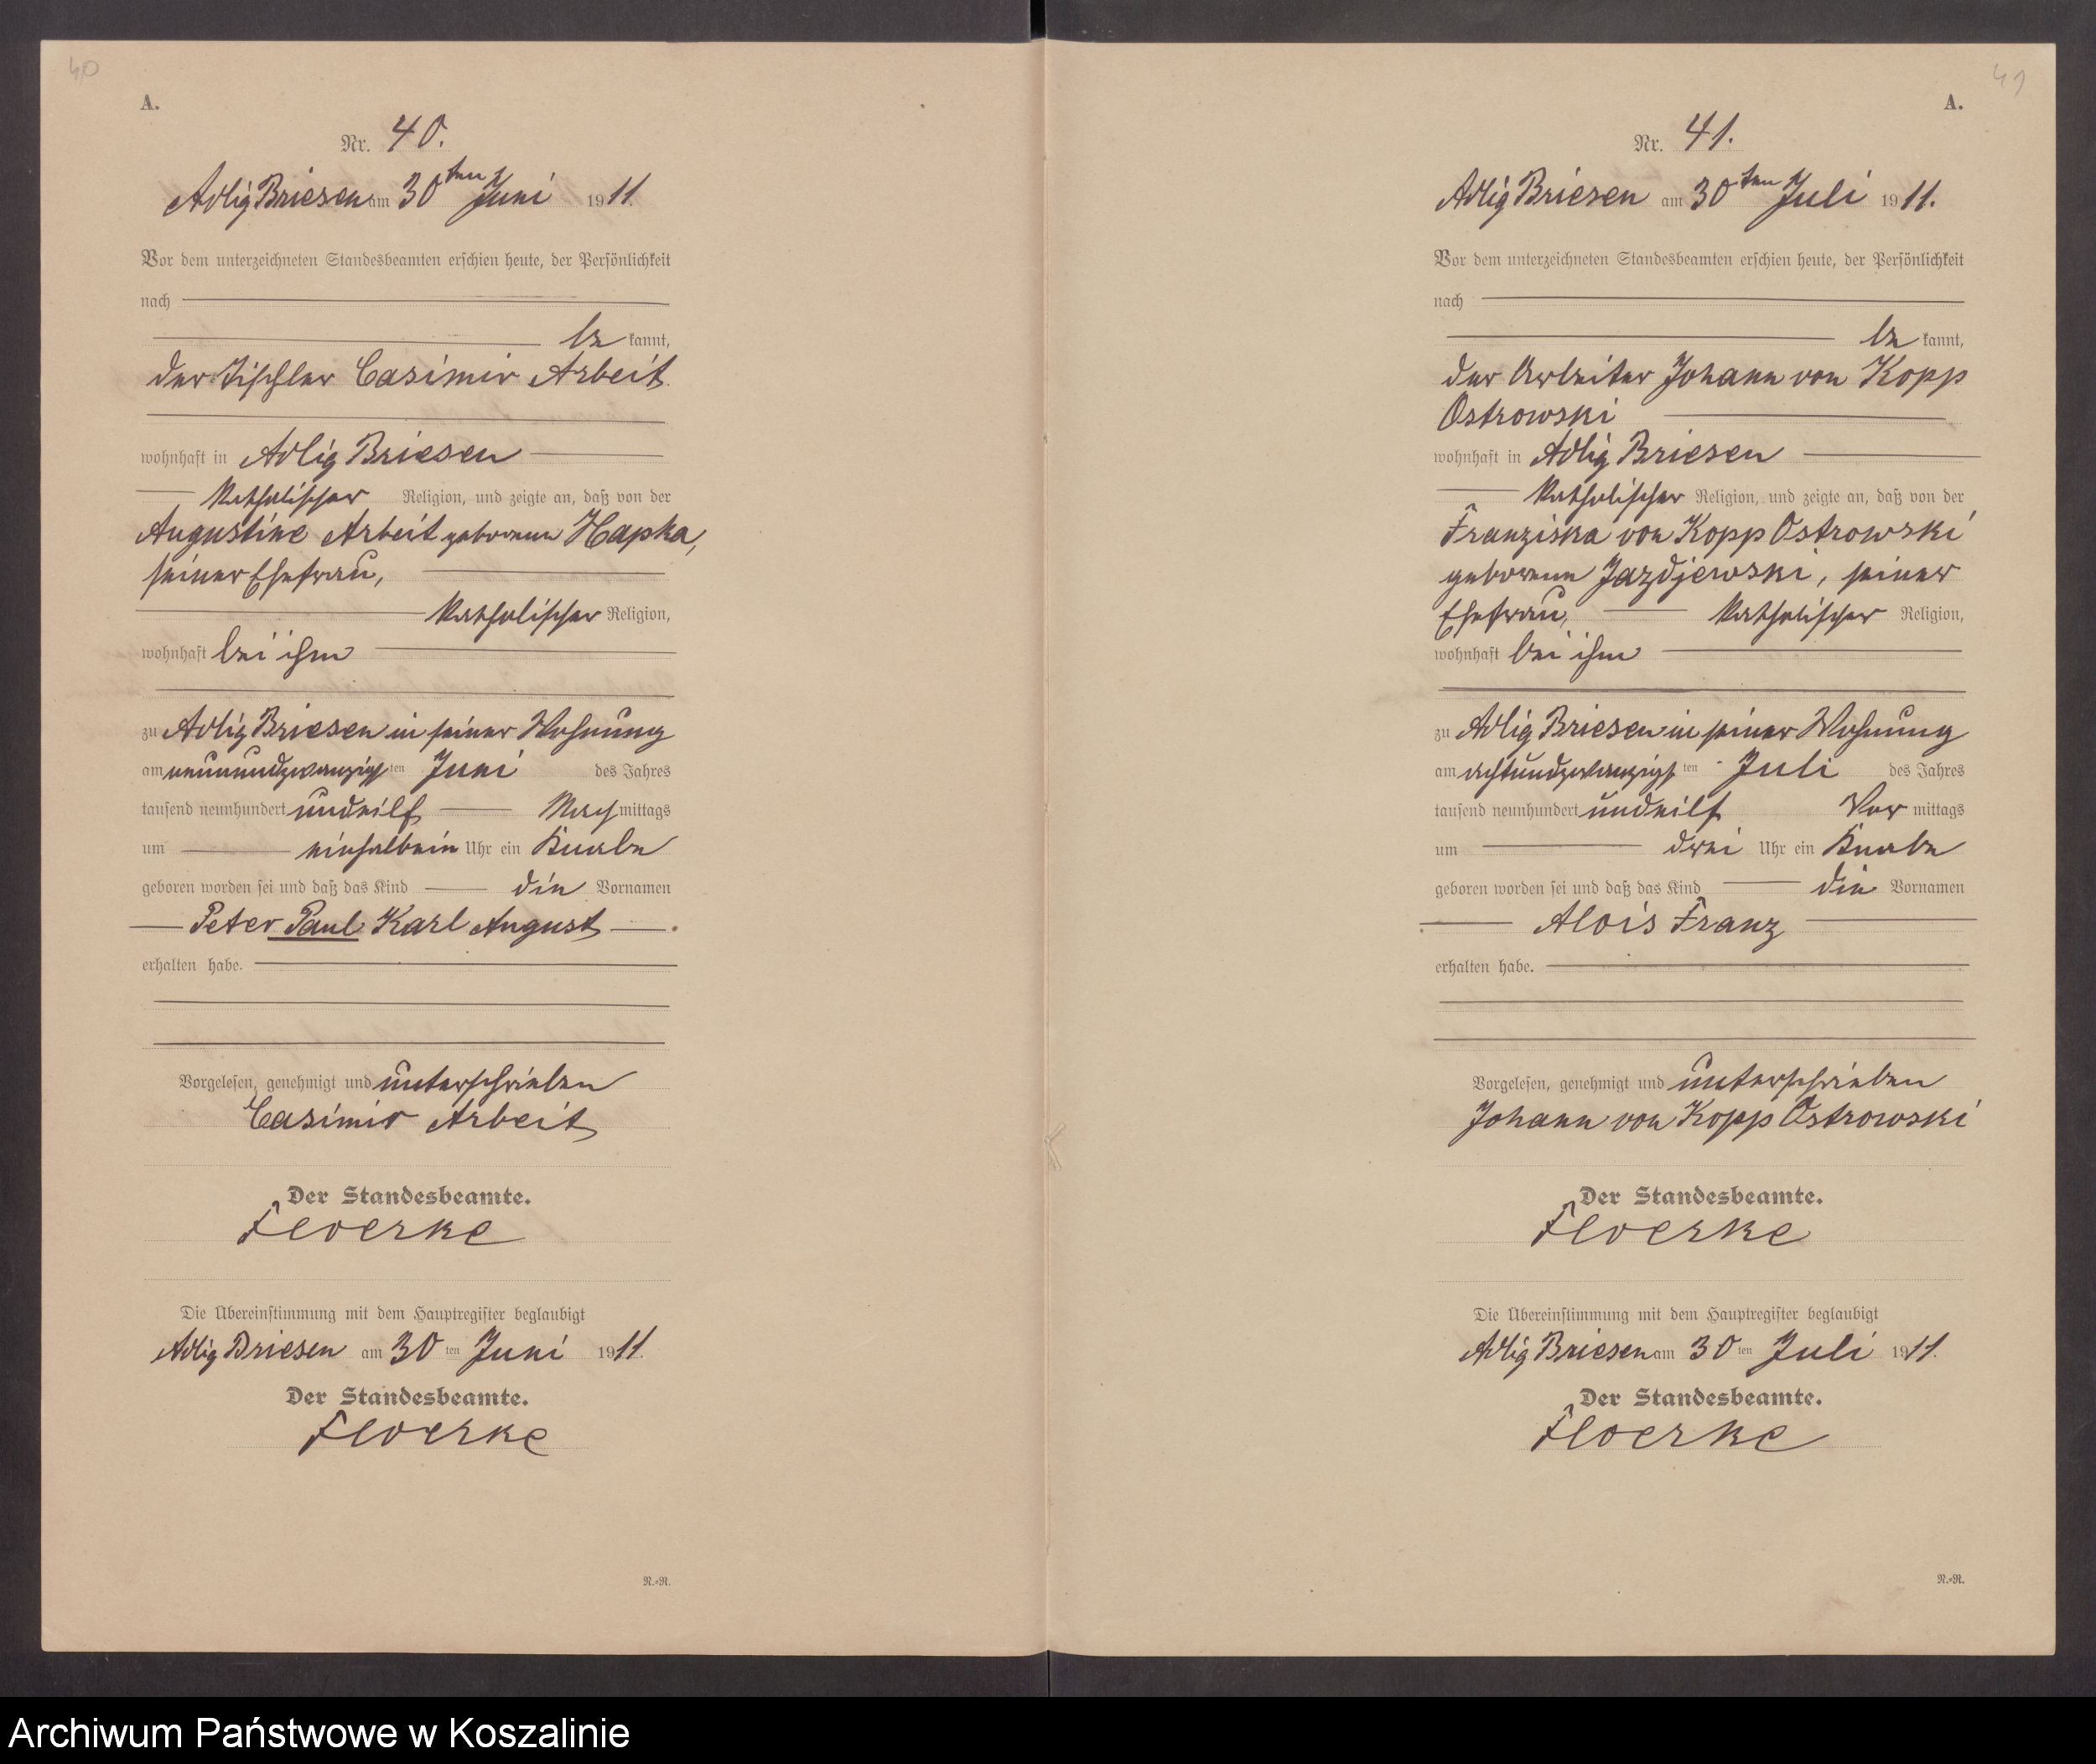 40
A.
Nr. 40.
Adlig Briesen am 30ten Juni 1911.
Vor dem unterzeichneten Standesbeamten erschien heute, der Persönlichkeit
nach
be kannt,
der Tischler Casimir Arbeit
wohnhaft in Adlig Briesen
katholischer Religion, und zeigte an, daß von der
Augustine Arbeit geborenen Hapka,
seiner Ehefrau,
katholischer Religion,
wohnhaft bei ihm
zu Adlig Briesen in seiner Wohnung
am neunundzwanzigsten Juni des Jahres
tausend neunhundert undeilf Nachmittags
um einhalbein Uhr ein Knabe
geboren worden sei und daß das Kind die Vornamen
Peter Paul Karl August
erhalten habe.
Vorgelesen, genehmigt und unterschrieben
Casimir Arbeit
Der Standesbeamte.
Floerke
Die Übereinstimmung mit dem Hauptregister beglaubigt
Adlig Briesen am 30ten Juni 1911.
Der Standesbeamte.
Floerke
N.=N.
41
A.
Nr. 41.
Adlig Briesen am 30ten Juli 1911.
Vor dem unterzeichneten Standesbeamten erschien heute, der Persönlichkeit
nach
be kannt,
der Arbeiter Johann von Kopp
Ostrowski
wohnhaft in Adlig Briesen
katholischer Religion, und zeigte an, daß von der
Franziska von Kopp Ostrowski
geborenen Jazdjewski, seiner
Ehefrau, katholischer Religion,
wohnhaft bei ihm
zu Adlig Briesen in seiner Wohnung
am achtundzwanzigsten Juli des Jahres
tausend neunhundert undeilf Vor mittags
um drei Uhr ein Knabe
geboren worden sei und daß das Kind die Vornamen
Alois Franz
erhalten habe.
Vorgelesen, genehmigt und unterschrieben
Johann von Kopp Ostrowski
Der Standesbeamte.
Floerke
Die Übereinstimmung mit dem Hauptregister beglaubigt
Adlig Briesen am 30ten Juli 1911.
Der Standesbeamte.
Floerke
N.=N.
Archiwum Państwowe w Koszalinie